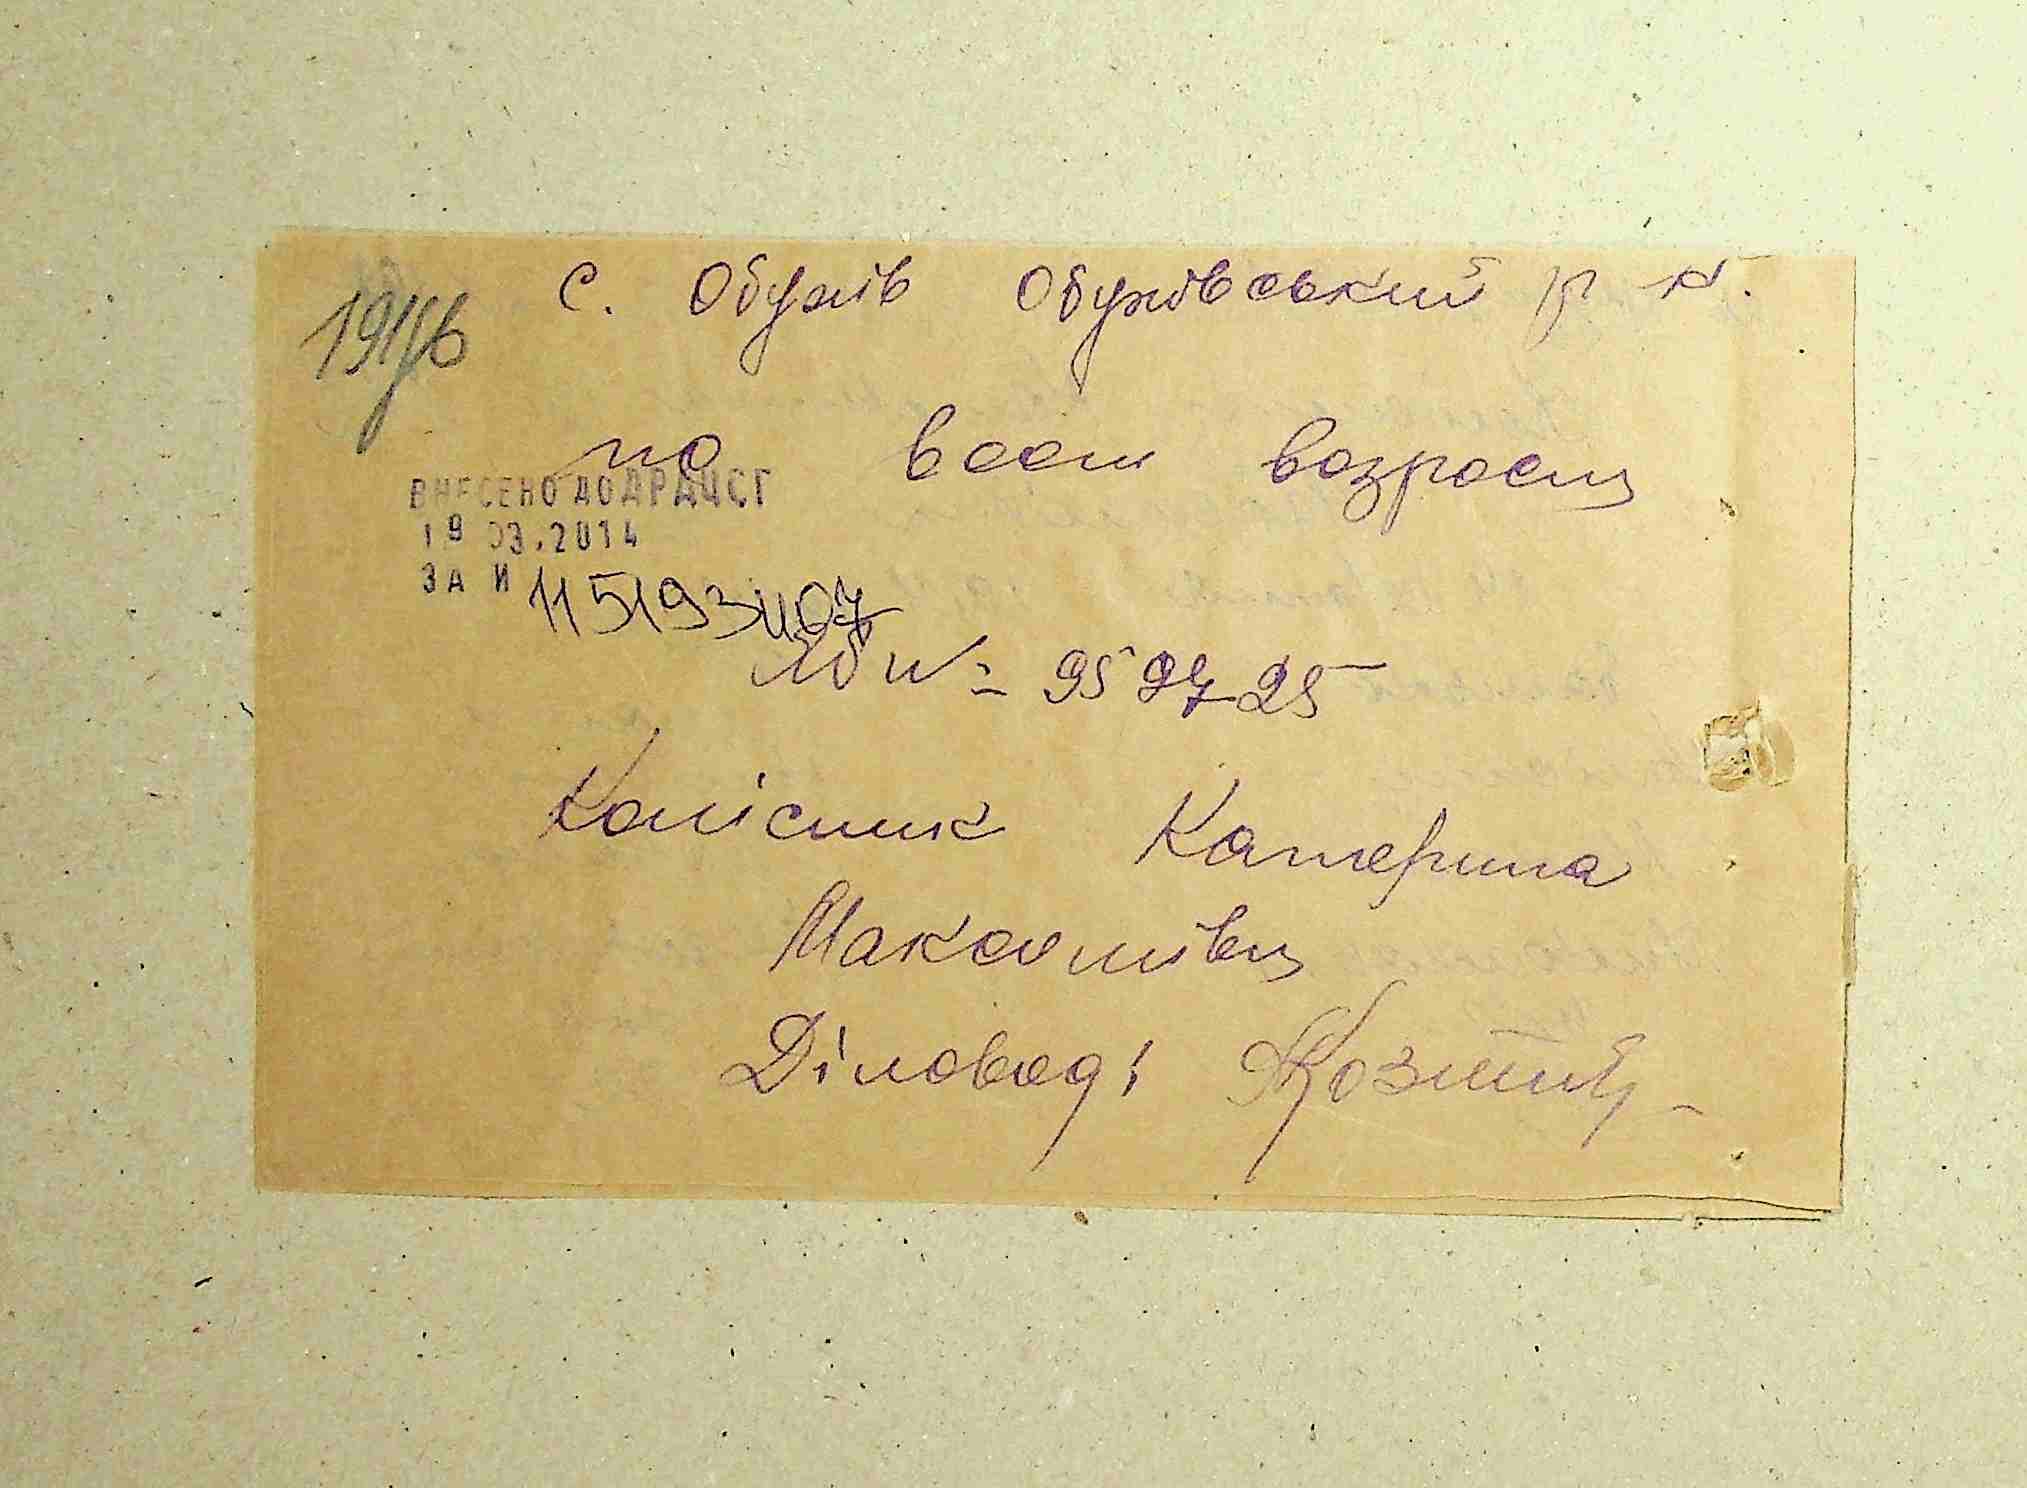 1946
с. Обухів Обухівський р н.
по всем возрасту
ВНЕСЕНО ДО ДРАЦСГ
19 03.2014
ЗА И 115193407
ЮБ № 952725
Колісник Катерина
Максимівна
Діловод: